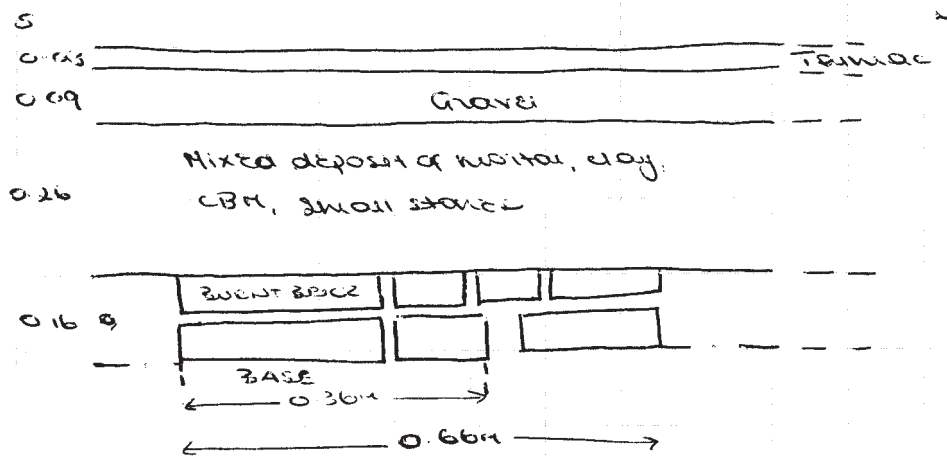 S
Tarmac
0.09 Gravel
Mixed deposit of mortar, clay,
0.26
CBM, small stones
BURNT BRICK
0.16
BASE
0.36M
0.66M